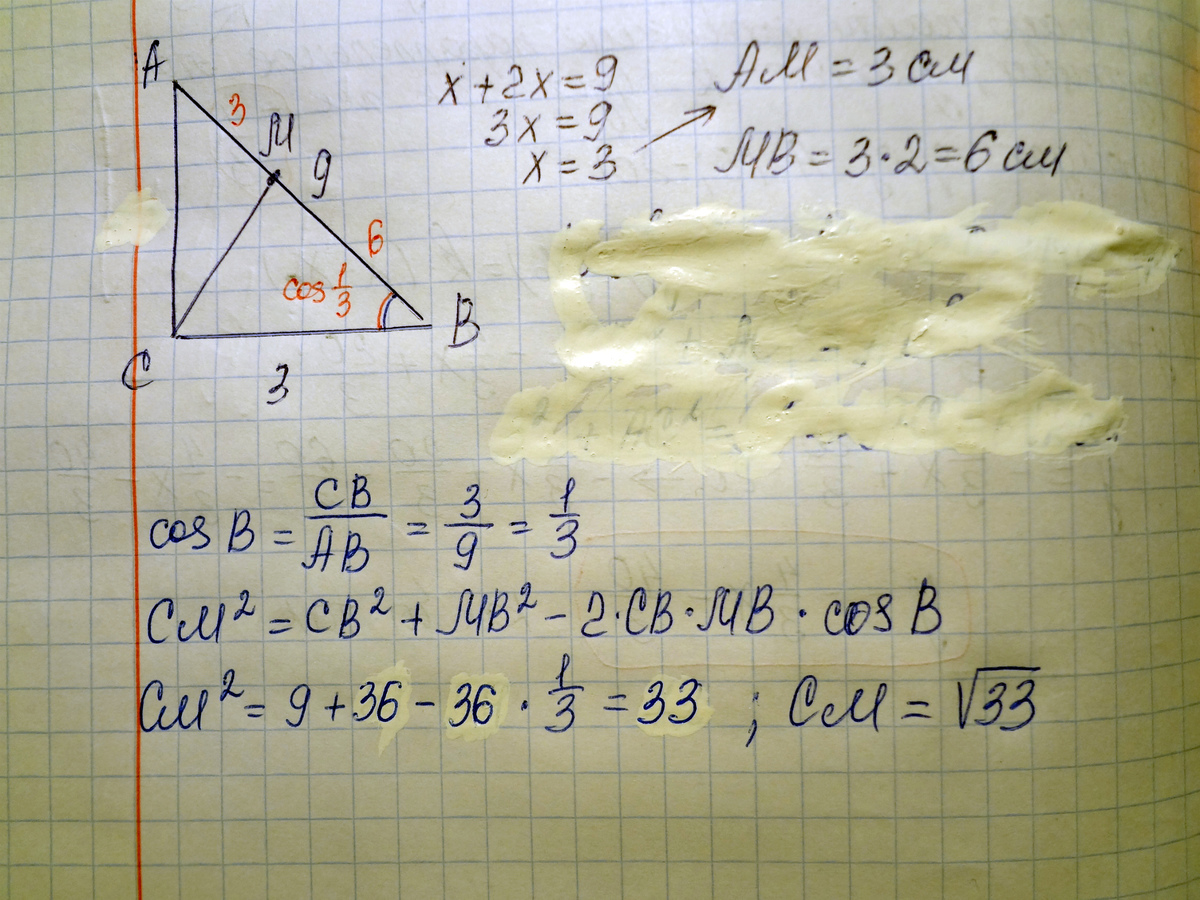 A
3
M
9
6
cos 1/3
B
C
3
x + 2x = 9
3x = 9
x = 3
AM = 3 см
MB = 3·2 = 6 см
cos B = CB/AB = 3/9 = 1/3
CM² = CB² + MB² - 2·CB·MB·cos B
CM² = 9 + 36 - 36·1/3 = 33 ; CM = √33